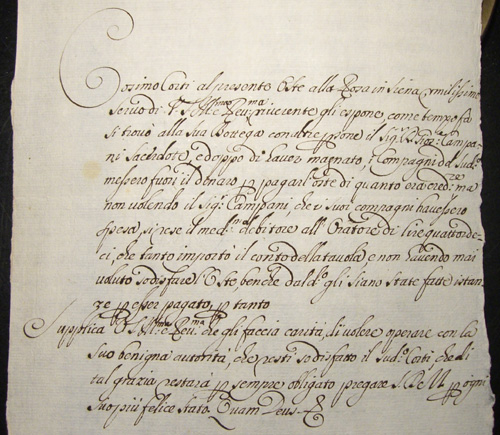 Cosimo Corti al presente Oste alla Rosa in Siena Umilissimo
servo di V. S. Ill.ma e Rev.ma riverente gli espone, come tempo fa
si trovò alla sua Bottega con altre p̱sone il Sig.r Gio: Campa-
ni Sacerdote, e doppo di haver magnato, i Compagni d. Sud.o
messero fuori il denaro p̱ pagar l'oste di quanto era cred.re ma
non volendo il Sig.r Campani, che i suoi compagni havessero
spesa, si rese il med.mo debitore all'Oratore di lire quattorde-
ci, che tanto importò il conto della tavola, e non havendo mai
voluto sodisfare l'Oste, benche dal d.o gli siano state fatte istan-
ze p̱ esser pagato, p̱ tanto
Supplica V. S. Ill.ma e Rev.ma che gli faccia carità, di volere operare con la
sua benigna autorità, che resti sodisfatto il sud.o Corti che di
tal grazia restarà p̱ sempre obligato pregare S. D. M. p̱ ogni
suo più felice stato. Quam Deus.